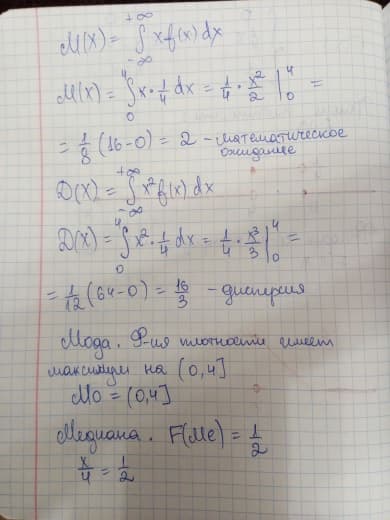 M(X) = ∫_{-∞}^{+∞} x f(x) dx
M(X) = ∫_0^4 x · 1/4 dx = 1/4 · x²/2 |_0^4 =
= 1/8 (16-0) = 2 - математическое ожидание
D(X) = ∫_{-∞}^{+∞} x² f(x) dx
D(X) = ∫_0^4 x² · 1/4 dx = 1/4 · x³/3 |_0^4 =
= 1/12 (64-0) = 16/3 - дисперсия
Мода. Ф-ия плотности имеет
максимум на (0,4]
Mo = (0,4]
Медиана. F(Me) = 1/2
x/4 = 1/2